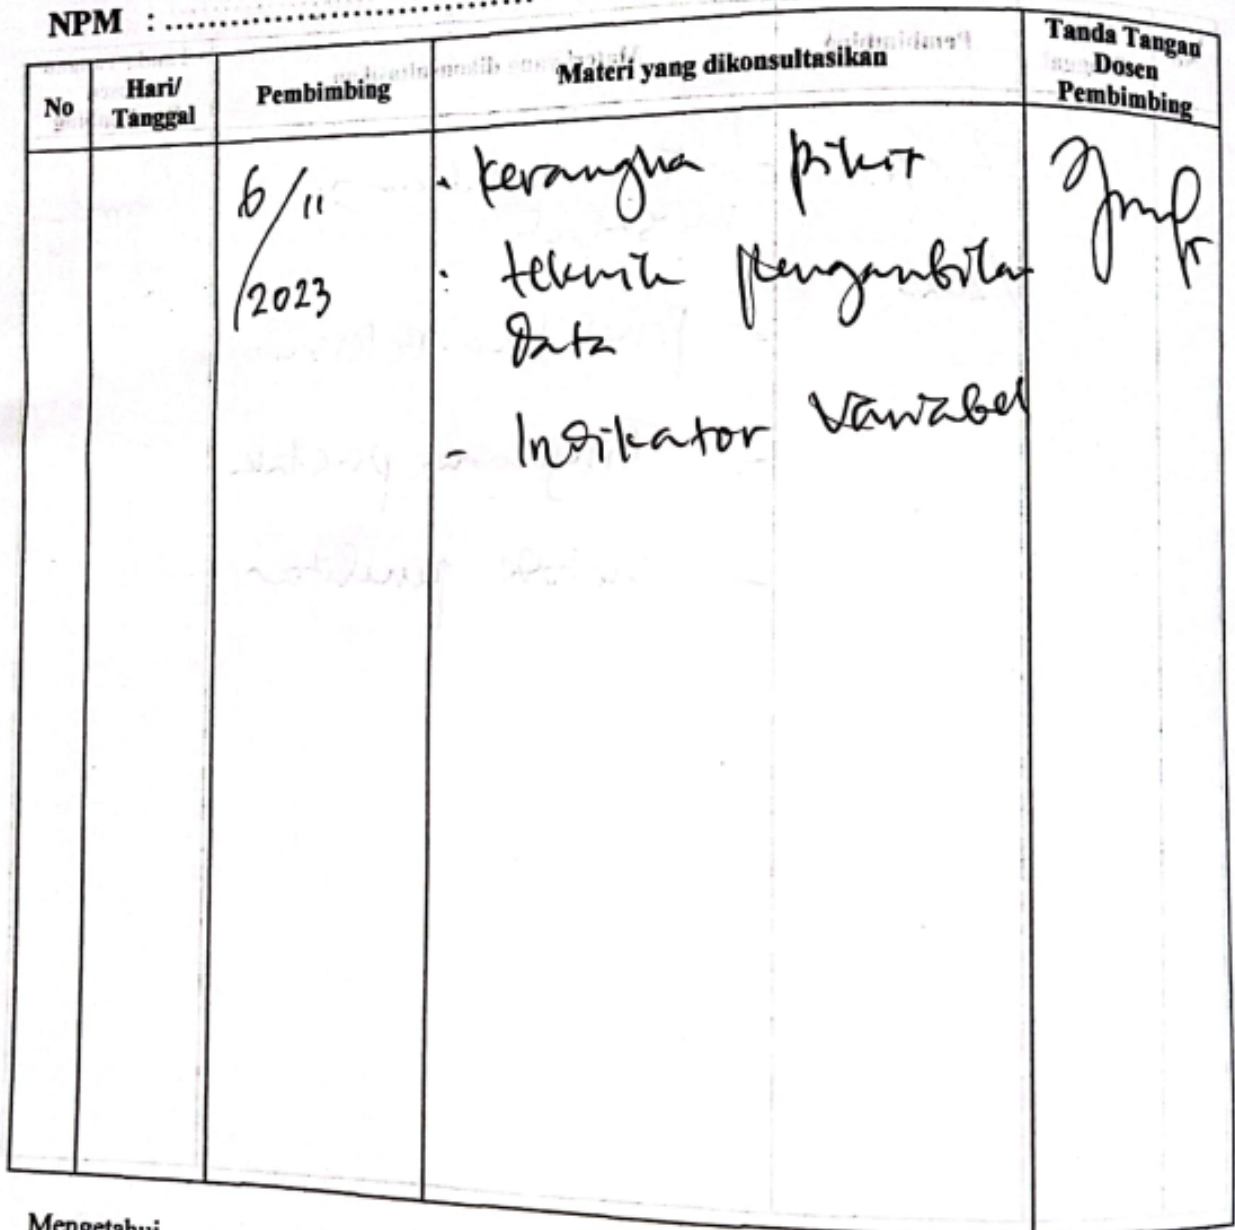 NPM : ........................................
No
Hari/
Tanggal
Pembimbing
Materi yang dikonsultasikan
Tanda Tangan
Dosen
Pembimbing
6/11
/2023
. kerangka pikir
. teknik pengambilan
data
- Indikator Variabel
Mengetahui